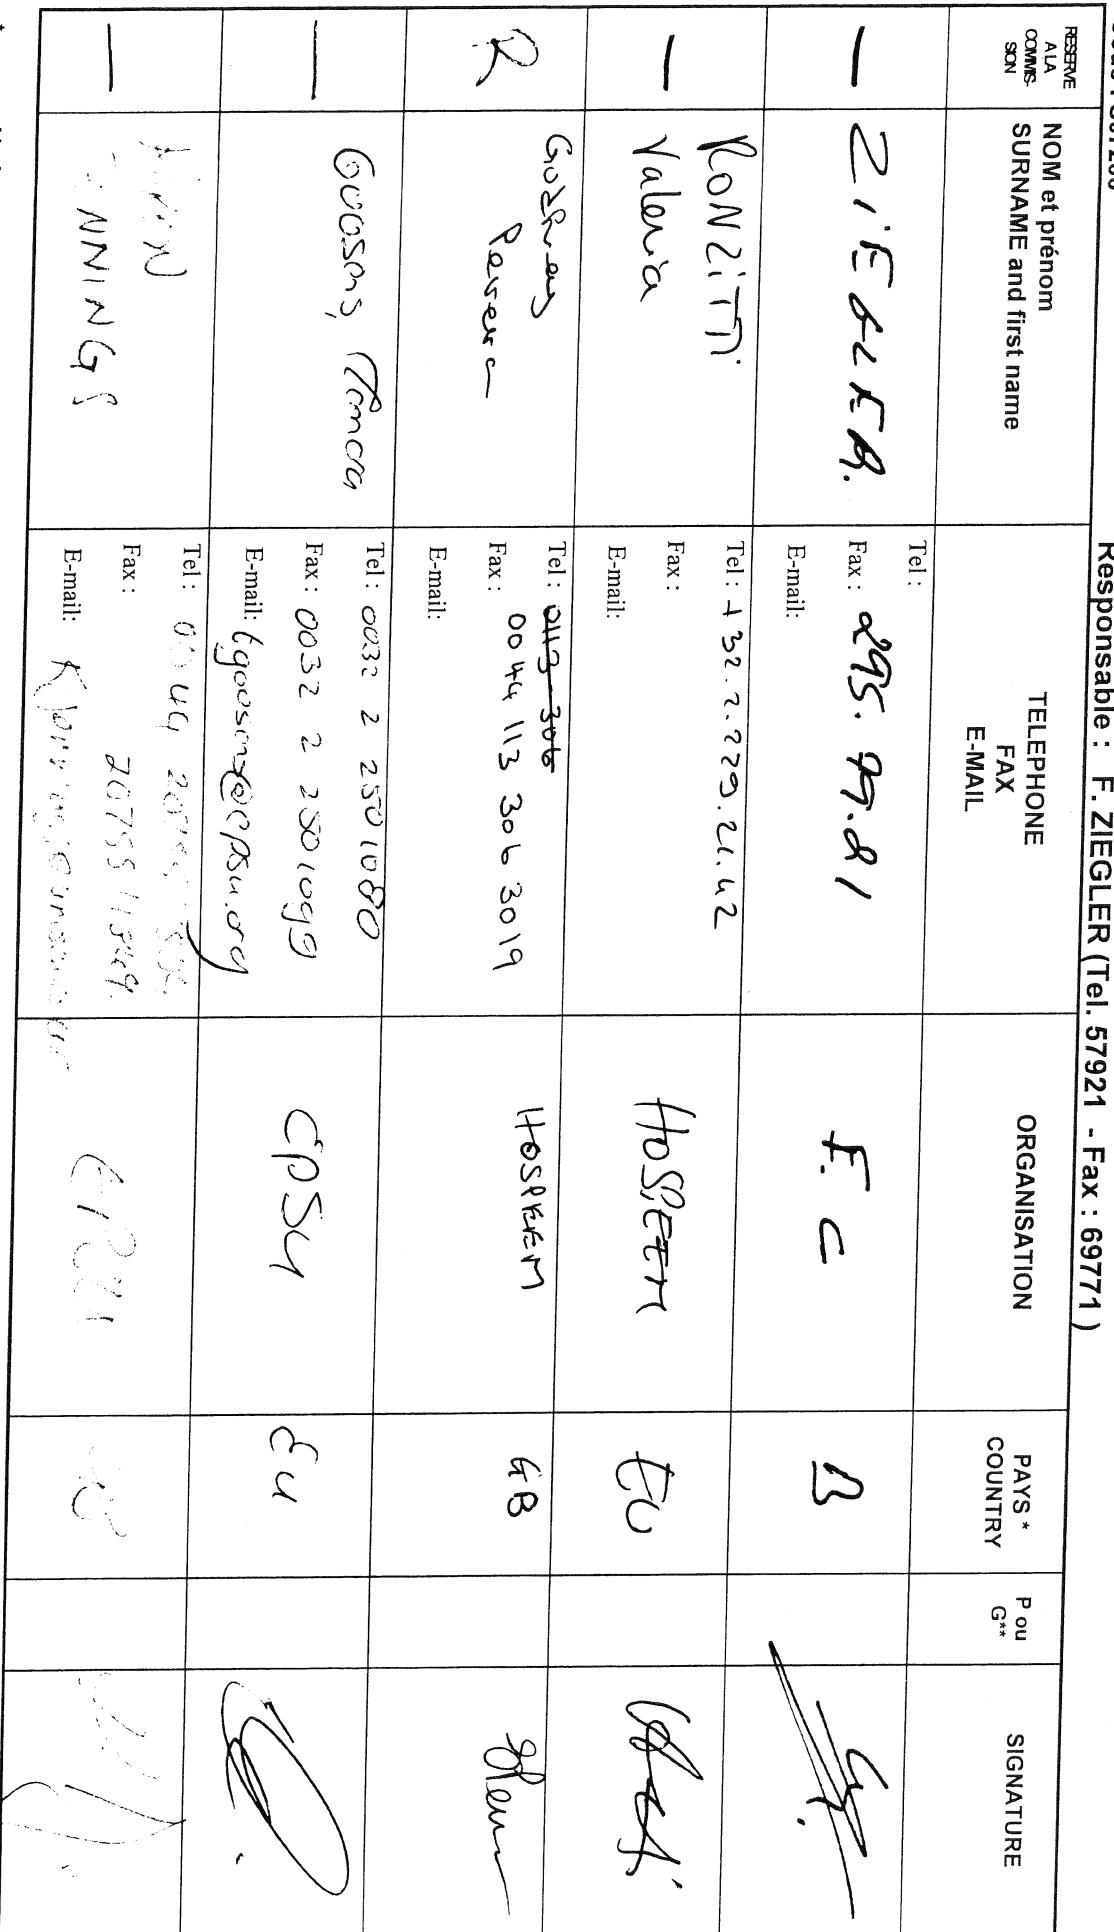 Responsable : F. ZIEGLER (Tel. 57921 - Fax : 69771 )
RESERVE
A LA
COMMIS-
SION
NOM et prénom
SURNAME and first name
TELEPHONE
FAX
E-MAIL
ORGANISATION
PAYS *
COUNTRY
P ou
G**
SIGNATURE
—
ZIEGLER.
Tel :
Fax : 295.99.21
E-mail:
E. C
B
—
RONZITTI
Valeria
Tel : +32.2.229.21.42
Fax :
E-mail:
HOSPEEM
EU
R
Godfrey
Perera
Tel : 0113-306
0044 113 306 3019
Fax :
E-mail:
HOSPEEM
GB
—
Goosens, Tamara
Tel : 0032 2 2501080
Fax : 0032 2 2501099
E-mail: tgoosens@epsu.org
EPSU
EU
—
NNINGS
Tel :
Fax :
E-mail:
EPSU